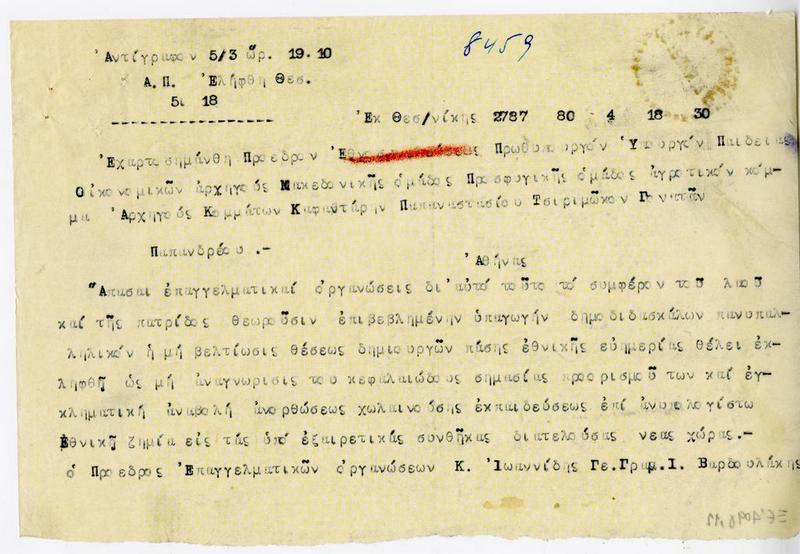 Ἀντίγραφον 5/3 ὥρ. 19.10
8459
Α.Π. Ἐλήφθη Θεσ.
5ι 18
Ἐκ Θεσ/νίκης 2787 80 4 18 30
Ἐχαρτοσημάνθη Πρόεδρον Πρωθυπουργόν Ὑπουργόν Παιδείας
Οἰκονομικῶν ἀρχηγούς Μακεδονικῆς ὁμάδος Προσφυγικῆς ὁμάδος ἀγροτικόν κόμ-
μα Ἀρχηγούς Κομμάτων Καφαντάρην Παπαναστασίου Τσιριμῶκον Γονατᾶν
Παπανδρέου.-
Ἀθήνας
Ἅπασαι ἐπαγγελματικαί ὀργανώσεις δι'αὐτό τοῦτο τό συμφέρον τοῦ λαοῦ
καί τῆς πατρίδος θεωροῦσιν ἐπιβεβλημένην ὑπαγωγήν δημοδιδασκάλων πανυπαλ-
ληλικόν ἡ μή βελτίωσις θέσεως δημιουργῶν πάσης ἐθνικῆς εὐημερίας θέλει ἐκ-
ληφθῆ ὡς μή ἀναγνωρισις του κεφαλαιώδους σημασίας προορισμοῦ των καί ἐγ-
κληματική ἀναβολή ἀνορθώσεως χωλαινούσης ἐκπαιδεύσεως ἐπί ἀνυπολογίστω
Ἐθνικῇ ζημία εἰς τάς ὑπό ἐξαιρετικάς συνθήκας διατελούσας νεας χώρας.-
ὁ Πρόεδρος Ἐπαγγελματικῶν ὀργανώσεων Κ. Ἰωαννίδης Γε.Γραμ.Ι. Βαρδουλάκης